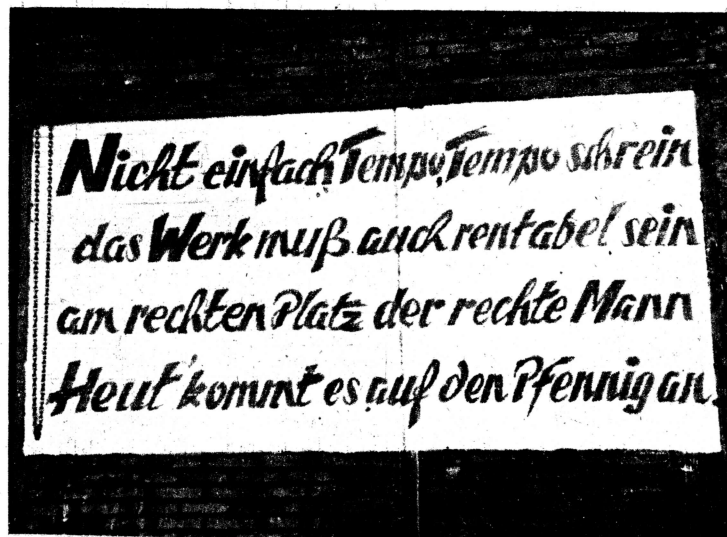 Nicht einfach Tempo, Tempo schrein
das Werk muß auch rentabel sein
am rechten Platz der rechte Mann
Heut' kommt es auf den Pfennig an.